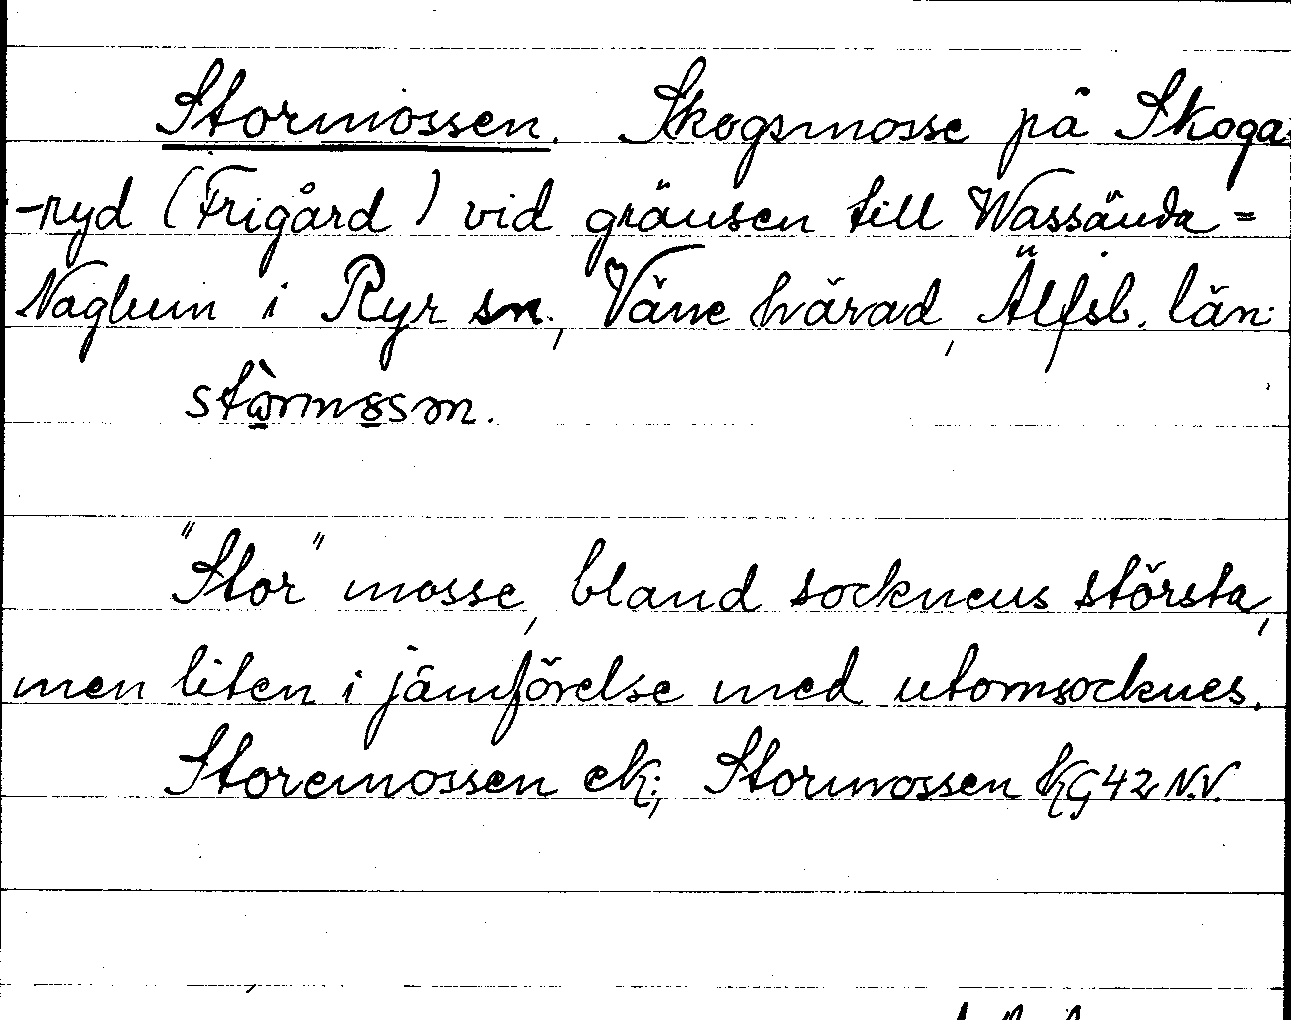 Stormossen. Skogsmosse på Skoga-
-ryd (Frigård) vid gränsen till Wassända=
Naglum i Ryr sn., Väne härad, Älfsb. län.
stòrmossn.
"Stor" mosse, bland socknens största,
men liten i jämförelse med utomsocknes.
Storemossen ek.; Stormossen KG 42 N.V.